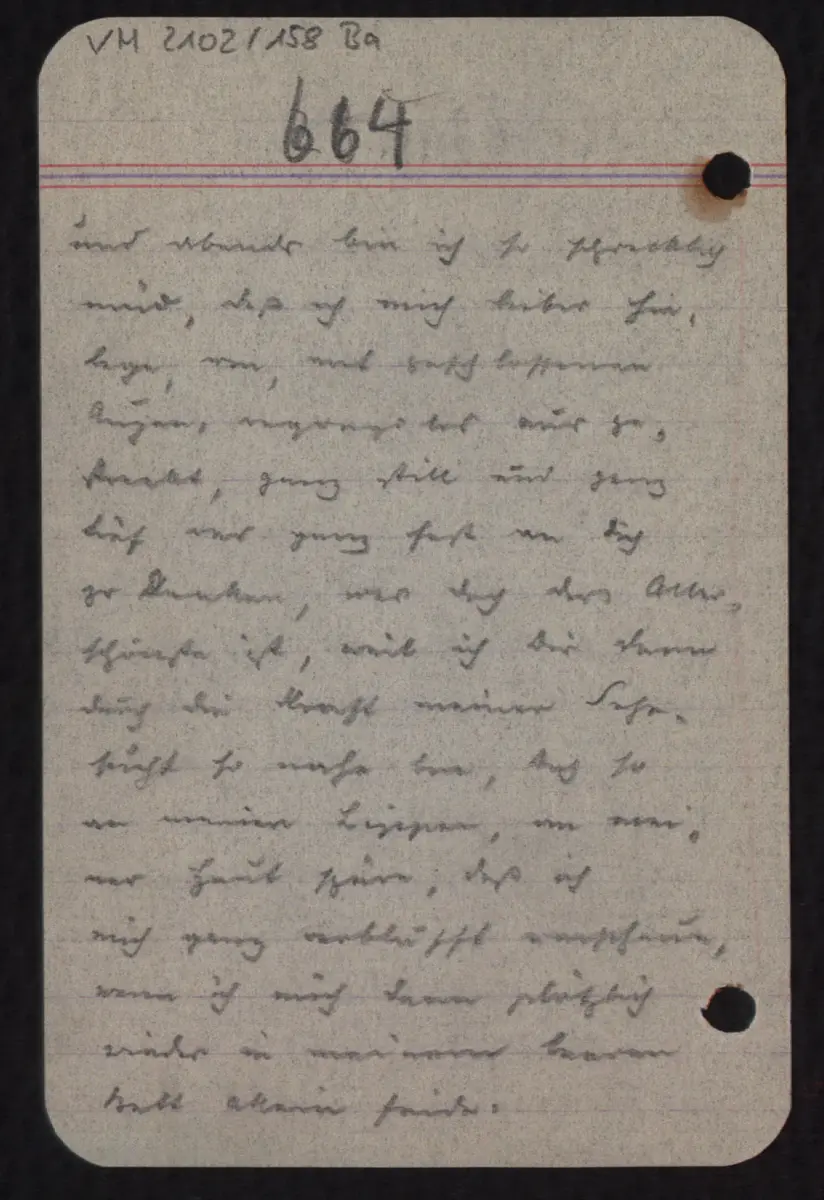 VM 2102/158 Ba
664
und abends bin ich so schrecklich
müd, daß ich mich lieber hin,
lege, um, mit geschlossenen
Augen, regungslos aus ge,
streckt, ganz still und ganz
tief und ganz fest an Dich
zu denken, was doch das Aller,
schönste ist, weil ich Dir dann
durch die Kraft meiner Sehn,
sucht so nahe bin, Dich so
an meinen Lippen, an mei,
ner Haut spüre, daß ich
mich ganz verblüfft umschaue,
wenn ich mich dann plötzlich
wieder in meinem leeren
Bett allein finde: